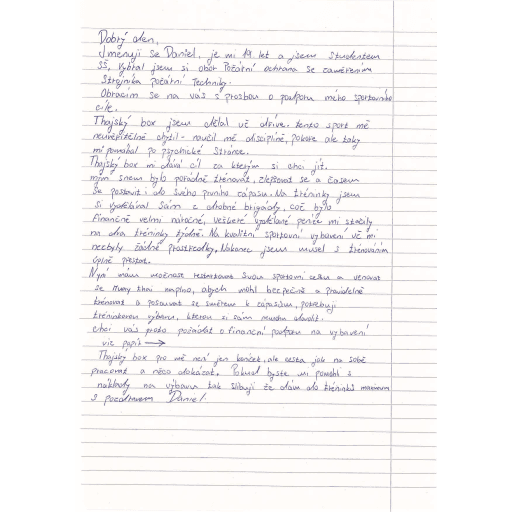 Dobrý den,
Jmenuji se Daniel, je mi 19 let a jsem studentem
SŠ, Vybral jsem si obor Požární ochrana se zaměřením
Strojníka požární techniky.
Obracím se na vás s prosbou o podporu mého sportovního
cíle.
Thajský box jsem dělal už dříve. tento sport mě
neuvěřitelně chytil - naučil mě disciplíně, pokoře ale taky
mi pomohal po psychické stránce.
Thajský box mi dává cíl za kterým si chci jít.
mým snem bylo pořádně trénovat, zlepšovat se a časem
se postavit do svého prvního zápasu. Na tréninky jsem
si vydělával sám z drobné brigády, což bylo
finančně velmi náročné, veškeré vydělané peníze mi stačily
na dva tréninky týdně. Na kvalitní sportovní vybavení už mi
nezbyly žádné prostředky. Nakonec jsem musel s trénováním
úplně přestat.
Nyní mám možnost restartovat svou sportovní cestu a věnovat
se muay thai naplno, abych mohl bezpečně a pravidelně
trénovat a posouvat se směrem k zápasům, potřebuji
tréninkovou výbavu, kterou si sám nemohu dovolit.
chci vás proto požádat o finanční podporu na vybavení
viz papír →
Thajský box pro mě není jen koníček, ale cesta jak na sobě
pracovat a něco dokázat. Pokud byste mi pomohli s
náklady na výbavu tak slibuji že dám do tréninků maximum
S pozdravem Daniel